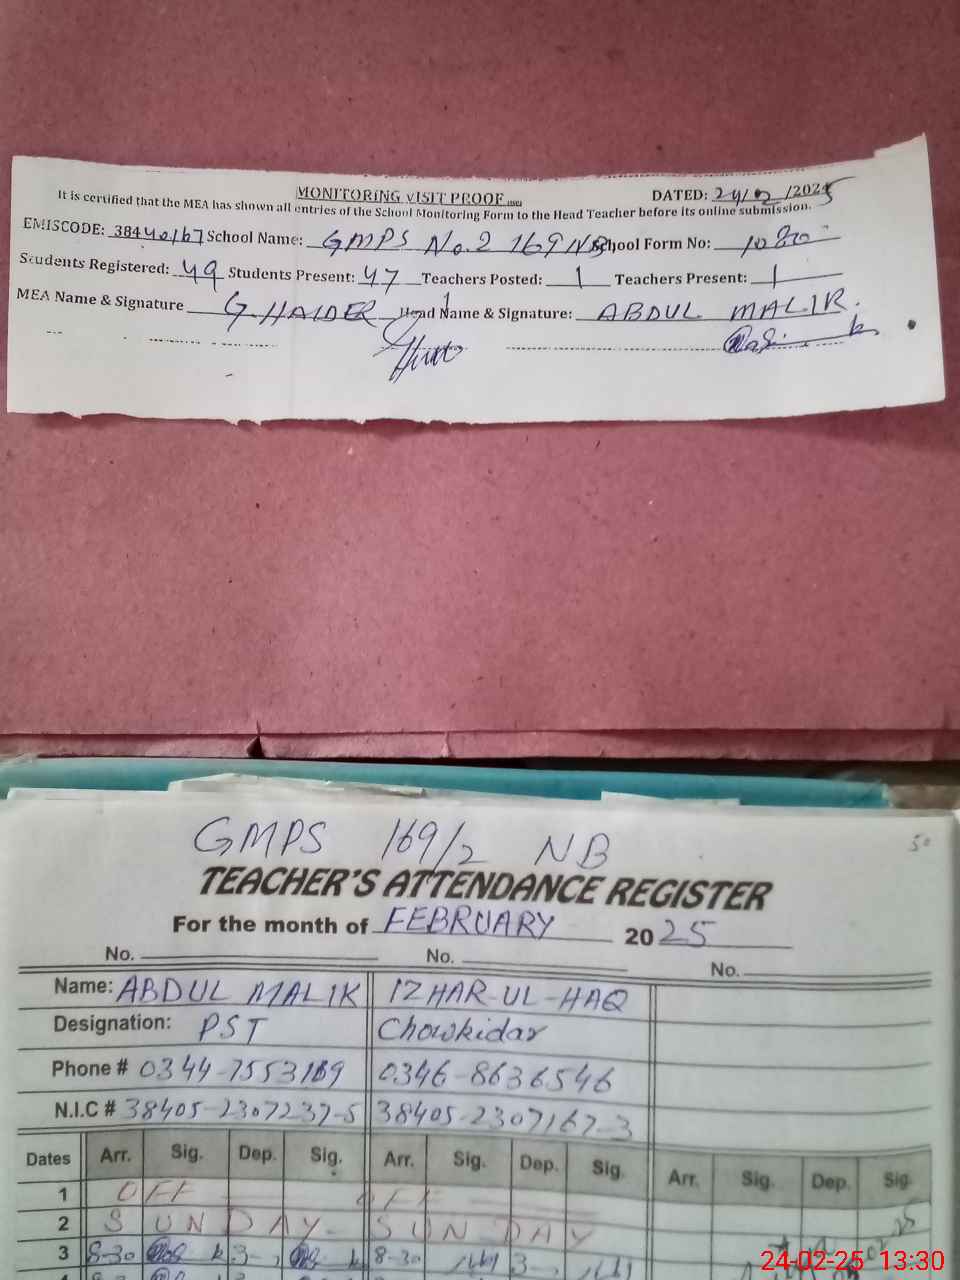 MONITORING VISIT PROOF
DATED: 24/02/2025
It is certified that the MEA has shown all entries of the School Monitoring Form to the Head Teacher before its online submission.
EMISCODE: 38440167 School Name: GMPS No.2 169 NB School Form No:
Students Registered: 49 Students Present: 47 Teachers Posted: 1 Teachers Present: 1
MEA Name & Signature G.HAIDER Head Name & Signature: ABDUL MALIK.
50
GMPS 169/2 NB
TEACHER'S ATTENDANCE REGISTER
For the month of FEBRUARY 2025
No. No. No.
Name: ABDUL MALIK IZHAR-UL-HAQ
Designation: PST Chowkidar
Phone # 0344-7553169 0346-8636546
N.I.C # 38405-2307237-5 38405-2307167-3
Dates Arr. Sig. Dep. Sig. Arr. Sig. Dep. Sig. Arr. Sig. Dep. Sig.
1 OFF OFF
2 SUNDAY SUNDAY
3 8-30 3 8-30 3
24-02-25 13:30